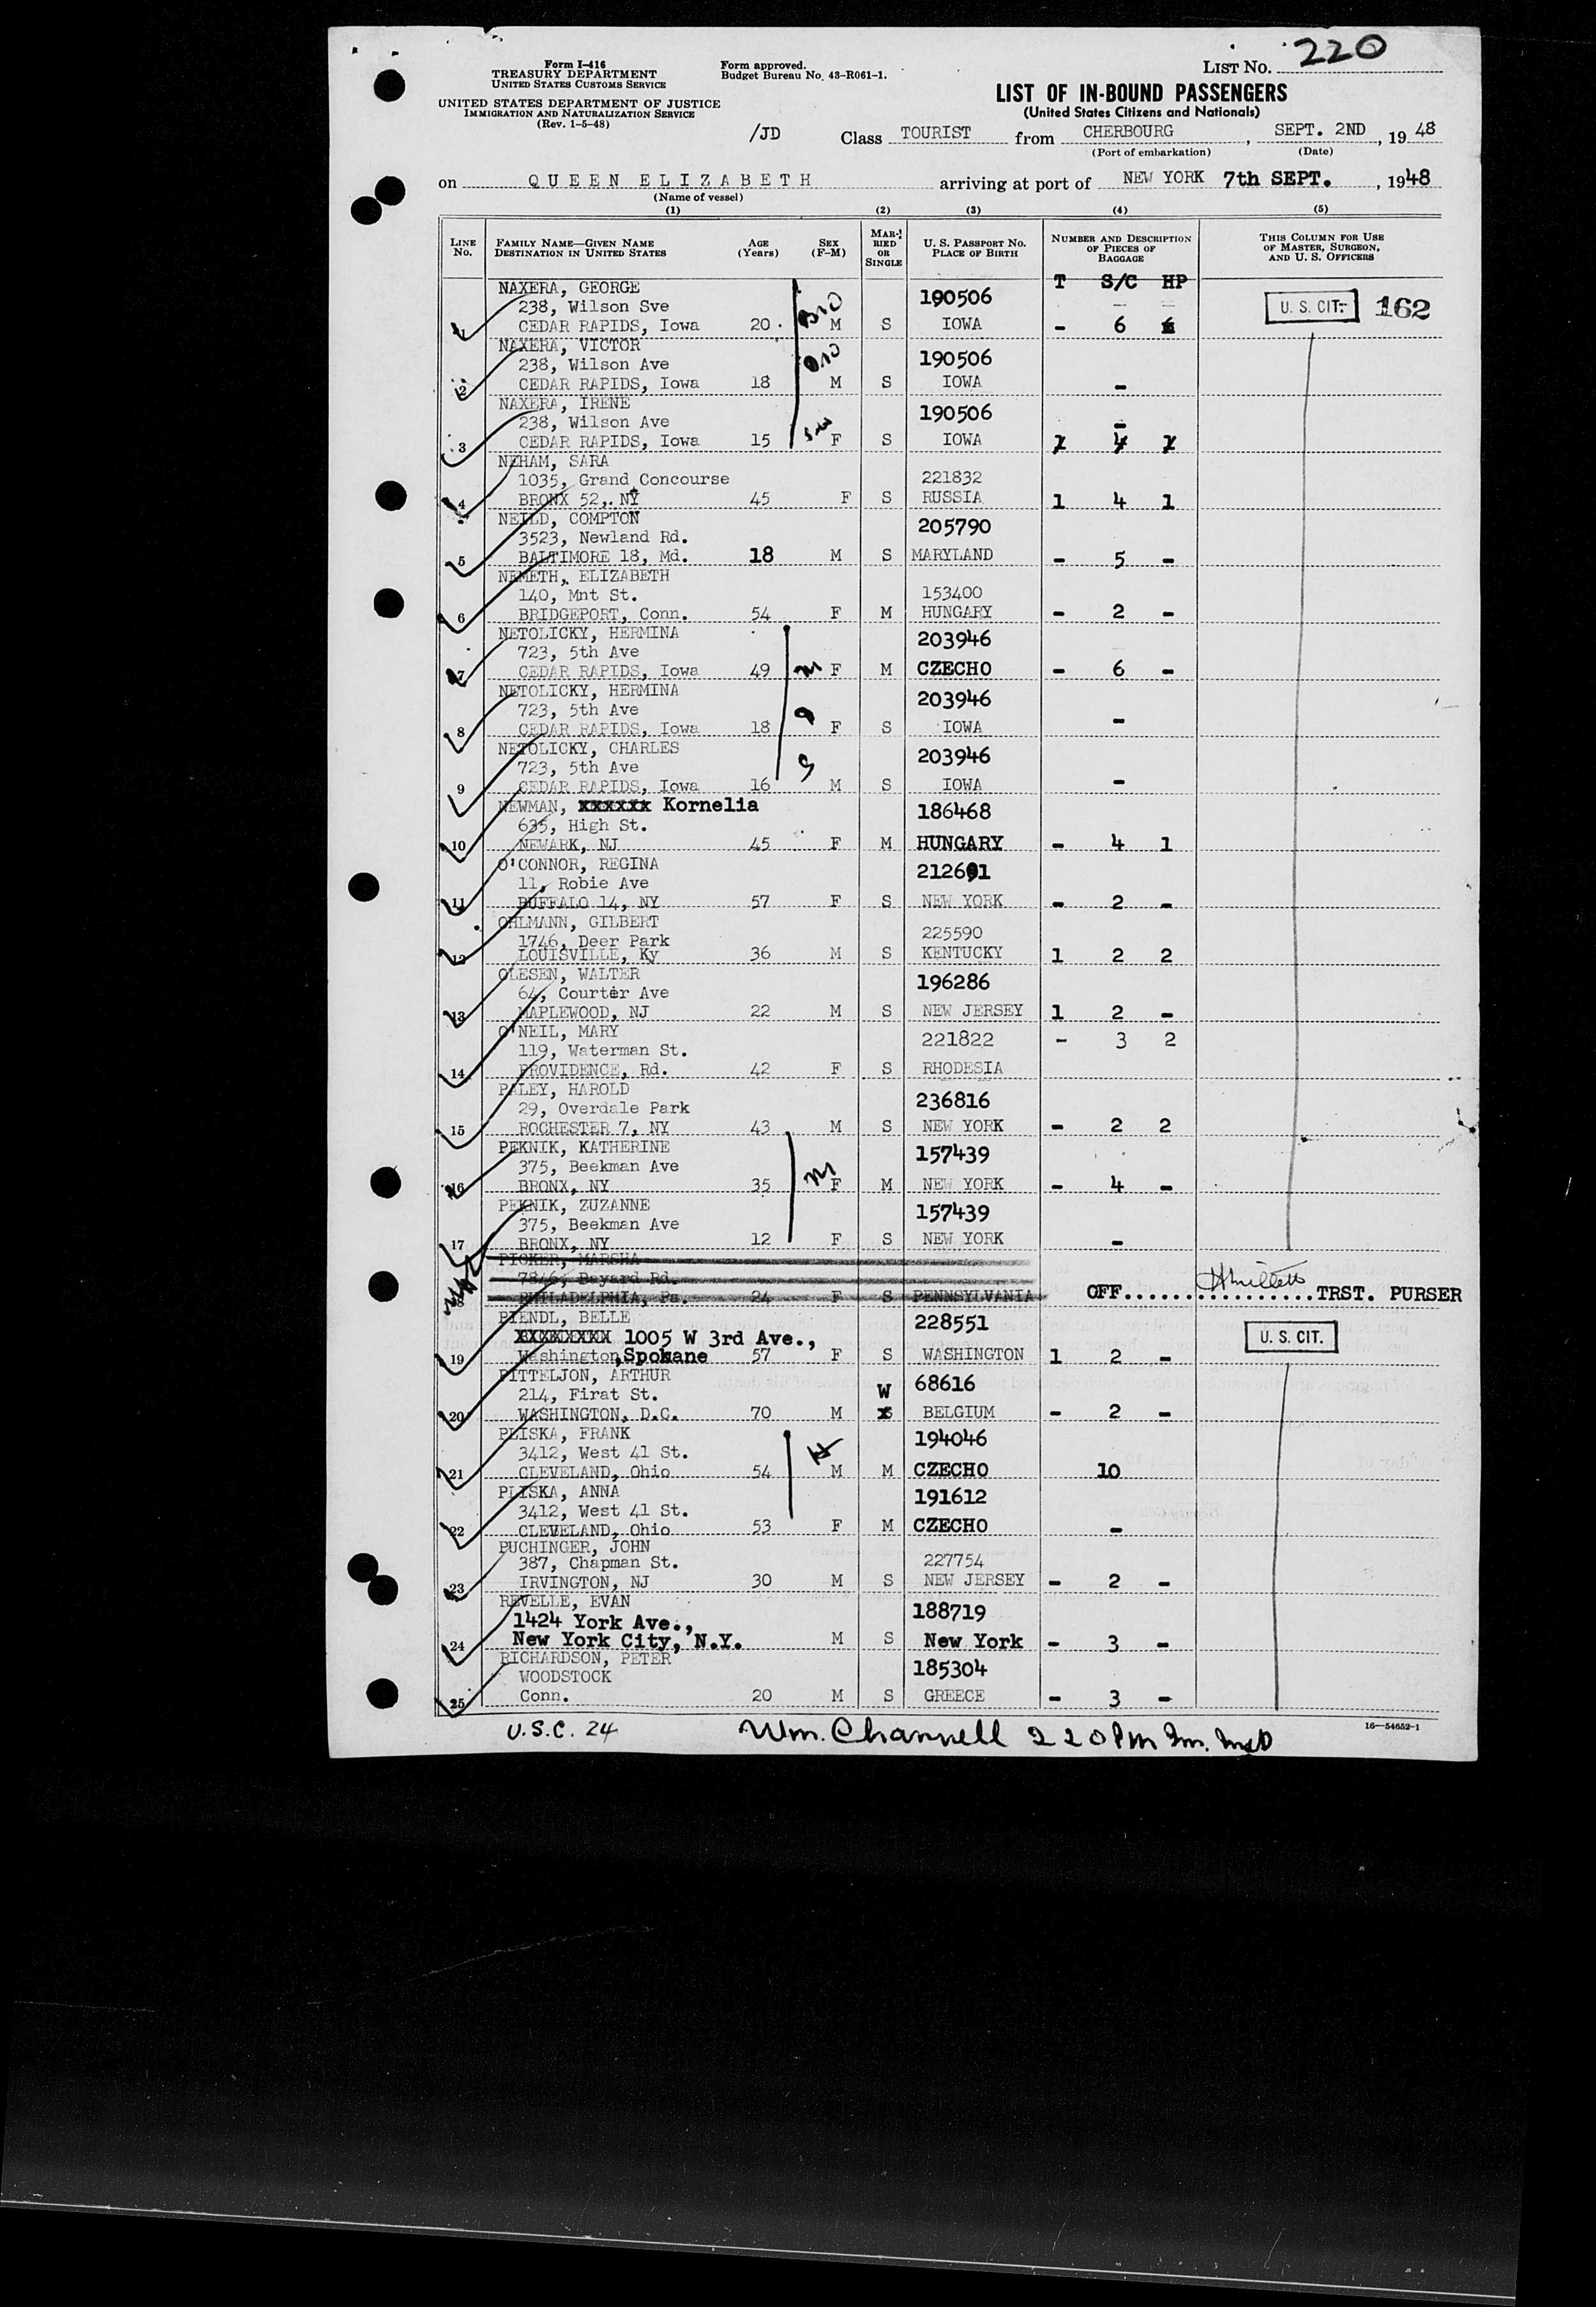 220
Form I-416
TREASURY DEPARTMENT
UNITED STATES CUSTOMS SERVICE
UNITED STATES DEPARTMENT OF JUSTICE
IMMIGRATION AND NATURALIZATION SERVICE
(Rev. 1-5-48)
Form approved.
Budget Bureau No. 43-R061-1.
LIST No.
LIST OF IN-BOUND PASSENGERS
(United States Citizens and Nationals)
/JD Class TOURIST from CHERBOURG, SEPT. 2ND, 1948
(Port of embarkation) (Date)
on QUEEN ELIZABETH arriving at port of NEW YORK 7th SEPT., 1948
(Name of vessel)
(1) (2) (3) (4) (5)
LINE No. FAMILY NAME—GIVEN NAME DESTINATION IN UNITED STATES AGE (Years) SEX (F-M) MARRIED OR SINGLE U. S. PASSPORT NO. PLACE OF BIRTH NUMBER AND DESCRIPTION OF PIECES OF BAGGAGE THIS COLUMN FOR USE OF MASTER, SURGEON, AND U. S. OFFICERS
T S/C HP
NAXERA, GEORGE
238, Wilson Sve 190506 U. S. CIT. 162
1 CEDAR RAPIDS, Iowa 20 M S IOWA - 6
NAXERA, VICTOR
238, Wilson Ave 190506
2 CEDAR RAPIDS, Iowa 18 M S IOWA -
NAXERA, IRENE
238, Wilson Ave 190506 -
3 CEDAR RAPIDS, Iowa 15 F S IOWA 1 4 1
NEHAM, SARA
1035, Grand Concourse 221832
4 BRONX 52,. NY 45 F S RUSSIA 1 4 1
NEILD, COMPTON 205790
3523, Newland Rd.
5 BALTIMORE 18, Md. 18 M S MARYLAND - 5 -
NEMETH, ELIZABETH
140, Mnt St. 153400
6 BRIDGEPORT, Conn. 54 F M HUNGARY - 2 -
NETOLICKY, HERMINA 203946
723, 5th Ave
7 CEDAR RAPIDS, Iowa 49 F M CZECHO - 6 -
NETOLICKY, HERMINA 203946
723, 5th Ave
8 CEDAR RAPIDS, Iowa 18 F S IOWA -
NETOLICKY, CHARLES 203946
723, 5th Ave
9 CEDAR RAPIDS, Iowa 16 M S IOWA -
NEWMAN, xxxxxx Kornelia 186468
635, High St.
10 NEWARK, NJ 45 F M HUNGARY - 4 1
O'CONNOR, REGINA 212691
11, Robie Ave
11 BUFFALO 14, NY 57 F S NEW YORK - 2 -
OHLMANN, GILBERT 225590
1746, Deer Park
12 LOUISVILLE, Ky 36 M S KENTUCKY 1 2 2
OLESEN, WALTER 196286
64, Courter Ave
13 MAPLEWOOD, NJ 22 M S NEW JERSEY 1 2 -
O'NEIL, MARY 221822 - 3 2
119, Waterman St.
14 PROVIDENCE, Rd. 42 F S RHODESIA
PALEY, HAROLD 236816
29, Overdale Park
15 ROCHESTER 7, NY 43 M S NEW YORK - 2 2
PEKNIK, KATHERINE 157439
375, Beekman Ave
16 BRONX, NY 35 F M NEW YORK - 4 -
PEKNIK, ZUZANNE 157439
375, Beekman Ave
17 BRONX, NY 12 F S NEW YORK -
PICKER, MARSHA
7846, Bayard Rd.
18 PHILADELPHIA, Pa. 24 F S PENNSYLVANIA OFF. TRST. PURSER
PIENDL, BELLE 228551
XXXXXXXX 1005 W 3rd Ave., U. S. CIT.
19 Washington,Spokane 57 F S WASHINGTON 1 2 -
PITTELJON, ARTHUR 68616
214, Firat St. W
20 WASHINGTON, D.C. 70 M BELGIUM - 2 -
PLISKA, FRANK 194046
3412, West 41 St.
21 CLEVELAND, Ohio 54 M M CZECHO 10
PLISKA, ANNA 191612
3412, West 41 St.
22 CLEVELAND, Ohio 53 F M CZECHO -
PUCHINGER, JOHN
387, Chapman St. 227754
23 IRVINGTON, NJ 30 M S NEW JERSEY - 2 -
REVELLE, EVAN 188719
1424 York Ave.,
24 New York City, N.Y. M S New York - 3 -
RICHARDSON, PETER 185304
WOODSTOCK
25 Conn. 20 M S GREECE - 3 -
U.S.C. 24 Wm. Channell 220 PM
16—54652-1